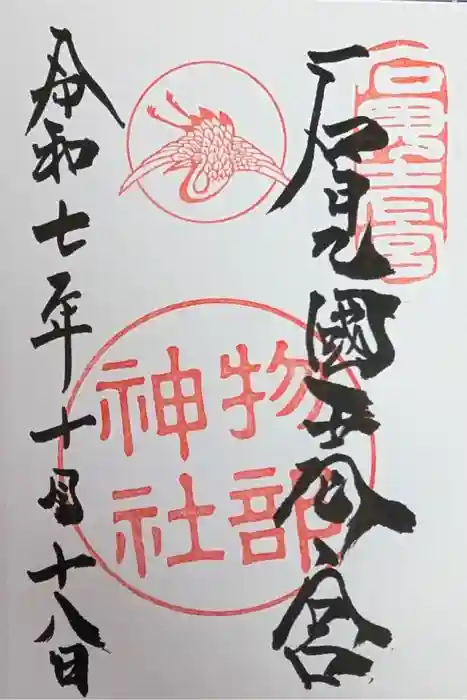 石見宮
石見國
物部
神社
令和七年十月十八日